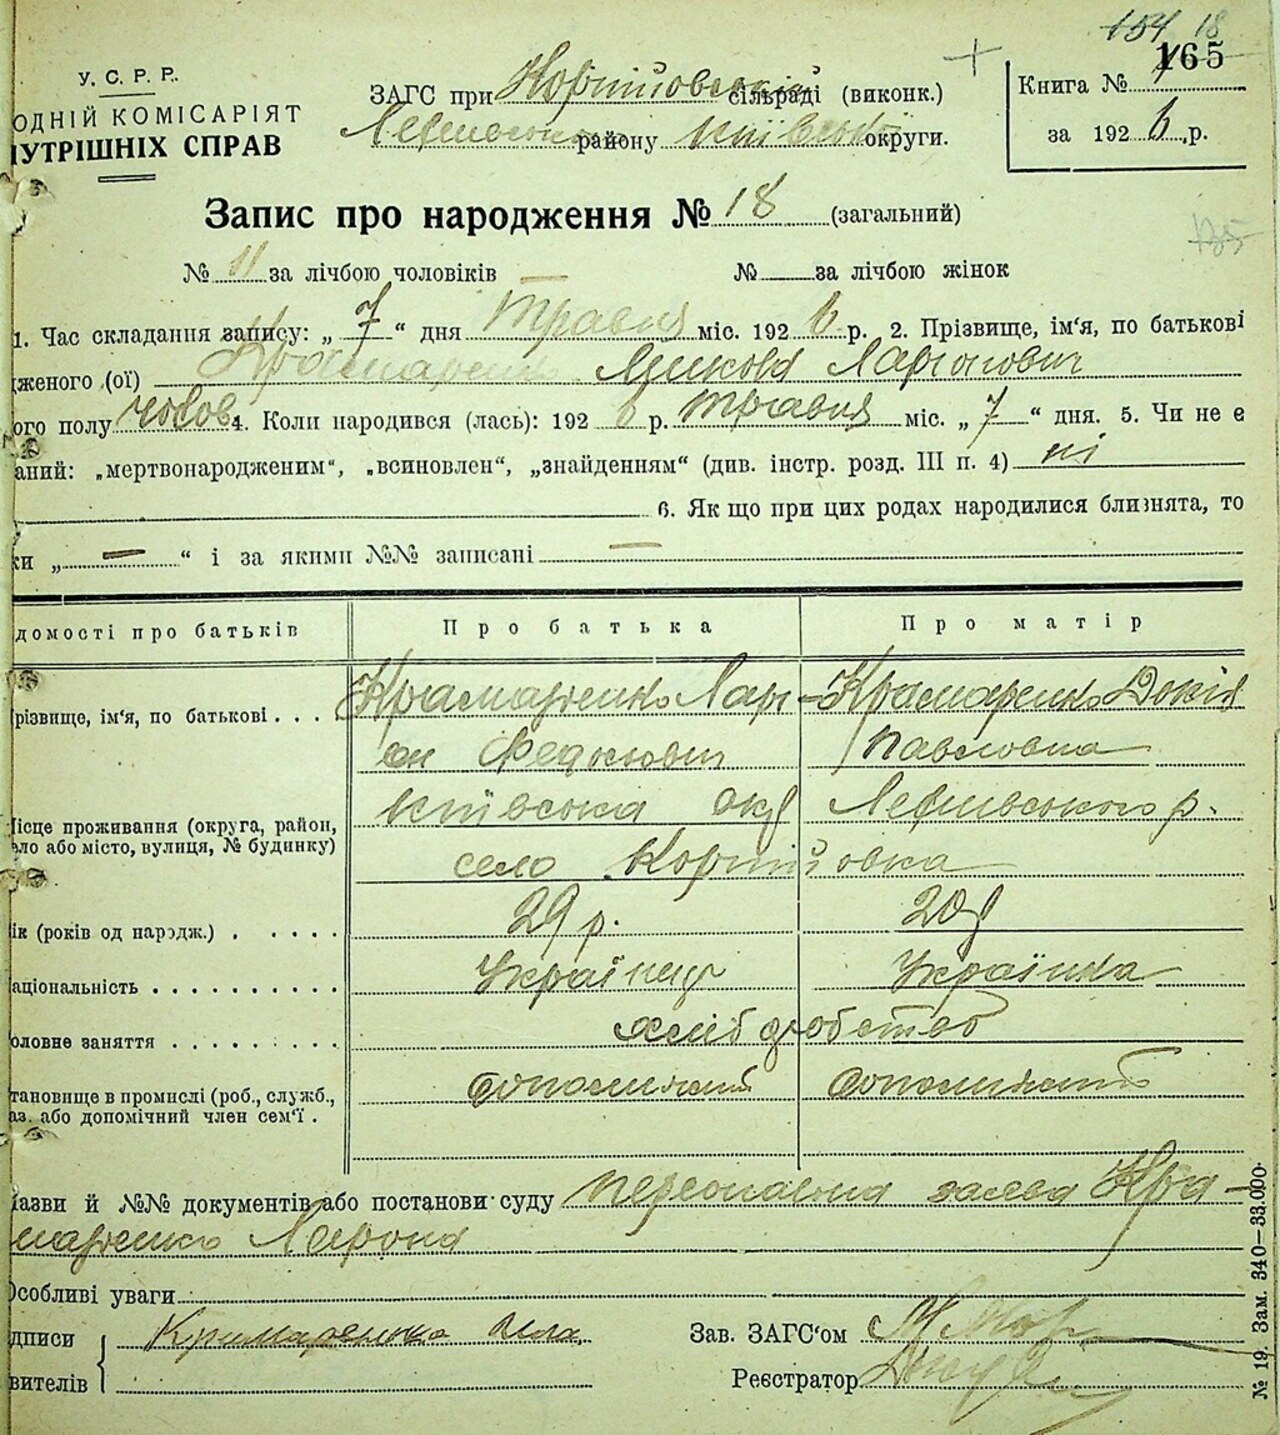 154 18
165
У. С. Р. Р.
ОДНІЙ КОМІСАРІЯТ
НУТРІШНІХ СПРАВ
ЗАГС при сільраді (виконк.)
району Київської округи.
Книга №
за 192 6 р.
Запис про народження № 18 (загальний)
№ 11 за лічбою чоловіків — № за лічбою жінок
135
1. Час складання запису: „ 7 “ дня Травня міс. 192 6 р. 2. Прізвище, ім'я, по батькові
дженого (ої) Крамаренко Микола Ларіонович
ого полу чолов. 4. Коли народився (лась): 192 6 р. травня міс. „ 7 “ дня. 5. Чи не є
аний: „мертвонародженим“, „всиновлен“, „знайденням“ (див. інстр. розд. III п. 4) ні
6. Як що при цих родах народилися близнята, то
ки „ — “ і за якими №№ записані —
домості про батьків Про батька Про матір
різвище, ім'я, по батькові . . . . Крамаренко Ларі- Крамаренко Докія
он Федосьович Павловна
Місце проживання (округа, район, Київська окр
ело або місто, вулиця, № будинку)
село
ік (років од народж.) . . . . . 29 р. 20 р
аціональність . . . . . . . . . . Українец Українка
оловне заняття . . . . . . . . . хлібробство
тановище в промислі (роб., служб.,
аз. або допомічний член сем'ї .
Назви й №№ документів або постанови суду персональна заява Кра-
маренко Ларіона
Особливі уваги
дписи Крамаренко
вителів
Зав. ЗАГС'ом
Реєстратор
№ 19. Зам. 340—33.000.